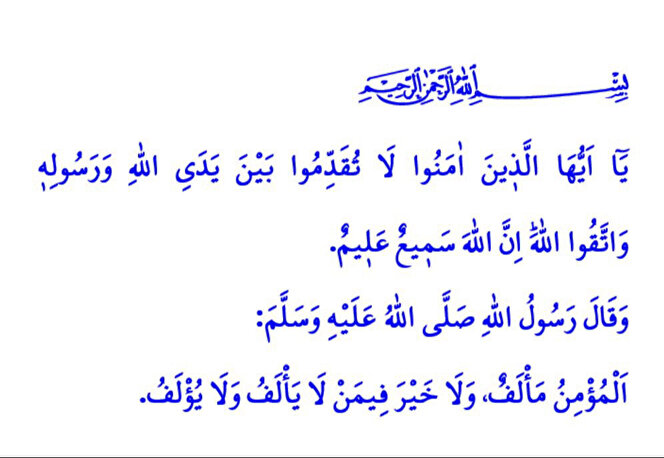 بِسْمِ اللهِ الرَّحْمٰنِ الرَّحِيمِ
يَٓا اَيُّهَا الَّذ۪ينَ اٰمَنُوا لَا تُقَدِّمُوا بَيْنَ يَدَيِ اللهِ وَرَسُولِه۪
وَاتَّقُوا اللهَۜ اِنَّ اللهَ سَم۪يعٌ عَل۪يمٌ.
وَقَالَ رَسُولُ اللهِ صَلَّى اللهُ عَلَيْهِ وَسَلَّمَ:
اَلْمُؤْمِنُ مَأْلَفٌ، وَلَا خَيْرَ فِيمَنْ لَا يَأْلَفُ وَلَا يُؤْلَفُ.